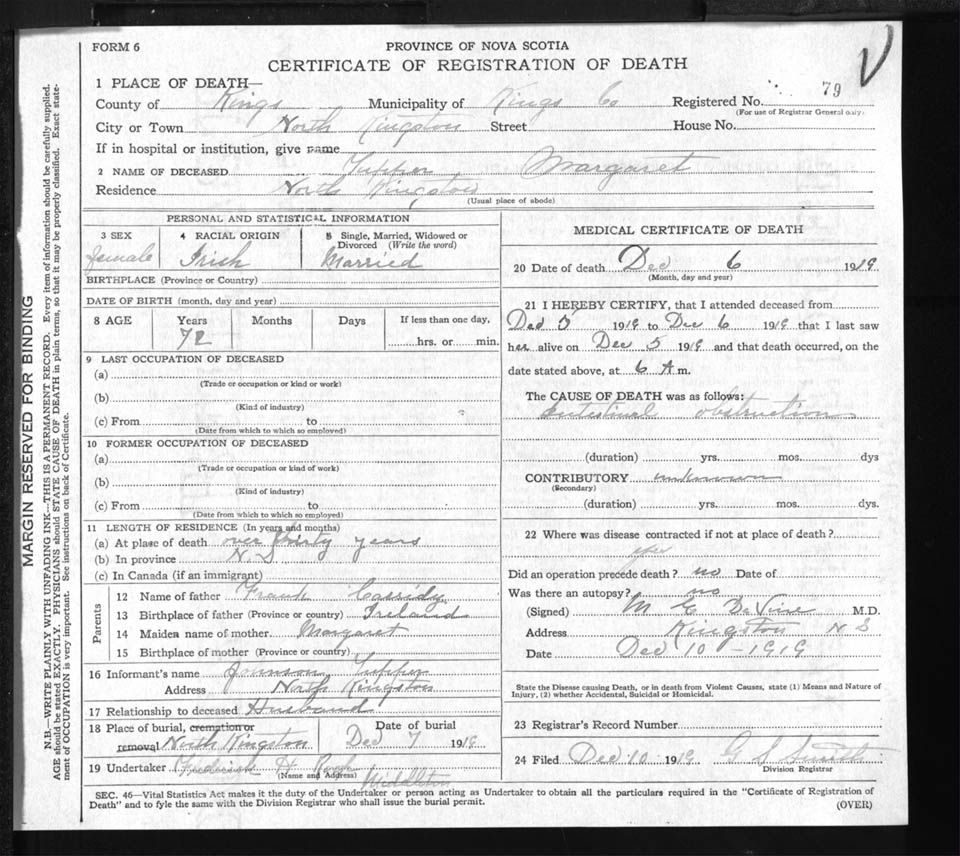 FORM 6
PROVINCE OF NOVA SCOTIA
CERTIFICATE OF REGISTRATION OF DEATH
1 PLACE OF DEATH—
County of Kings Municipality of Kings Co Registered No. 79
(For use of Registrar General only)
City or Town North Kingston Street House No.
If in hospital or institution, give name
2 NAME OF DECEASED Tupper Margaret
Residence North Kingston
(Usual place of abode)
PERSONAL AND STATISTICAL INFORMATION
3 SEX
female
4 RACIAL ORIGIN
Irish
5 Single, Married, Widowed or
Divorced (Write the word)
Married
BIRTHPLACE (Province or Country)
DATE OF BIRTH (month, day and year)
8 AGE Years Months Days If less than one day,
72 hrs. or min.
9 LAST OCCUPATION OF DECEASED
(a)
(Trade or occupation or kind or work)
(b)
(Kind of industry)
(c) From to
(Date from which to which so employed)
10 FORMER OCCUPATION OF DECEASED
(a)
(Trade or occupation or kind of work)
(b)
(Kind of industry)
(c) From to
(Date from which to which so employed)
11 LENGTH OF RESIDENCE (In years and months)
(a) At place of death over thirty years
(b) In province N. S
(c) In Canada (if an immigrant)
Parents
12 Name of father Frank Cassidy
13 Birthplace of father (Province or country) Ireland
14 Maiden name of mother Margaret
15 Birthplace of mother (Province or country)
16 Informant's name Johnson Tupper
Address North Kingston
17 Relationship to deceased Husband
18 Place of burial, cremation or
removal North Kingston
Date of burial
Dec 7 1919
19 Undertaker Frederick H
(Name and Address) Middleton
MEDICAL CERTIFICATE OF DEATH
20 Date of death Dec 6 1919
(Month, day and year)
21 I HEREBY CERTIFY, that I attended deceased from
Dec 5 1919 to Dec 6 1919 that I last saw
her alive on Dec 5 1919 and that death occurred, on the
date stated above, at 6 A m.
The CAUSE OF DEATH was as follows:
Intestinal obstruction
(duration) yrs. mos. dys
CONTRIBUTORY unknown
(Secondary)
(duration) yrs. mos. dys.
22 Where was disease contracted if not at place of death?
Did an operation precede death? no Date of
Was there an autopsy? no
(Signed) M E DeVine M.D.
Address Kingston N S
Date Dec 10 - 1919
State the Disease causing Death, or in death from Violent Causes, state (1) Means and Nature of
Injury, (2) whether Accidental, Suicidal or Homicidal.
23 Registrar's Record Number
24 Filed Dec 10 1919 G S Smith
Division Registrar
SEC. 46—Vital Statistics Act makes it the duty of the Undertaker or person acting as Undertaker to obtain all the particulars required in the "Certificate of Registration of
Death" and to fyle the same with the Division Registrar who shall issue the burial permit.
(OVER)
MARGIN RESERVED FOR BINDING
N.B.—WRITE PLAINLY WITH UNFADING INK—THIS IS A PERMANENT RECORD. Every item of information should be carefully supplied.
AGE should be stated EXACTLY. PHYSICIANS should STATE CAUSE OF DEATH in plain terms, so that it may be properly classified. Exact state-
ment of OCCUPATION is very important. See instructions on back of Certificate.